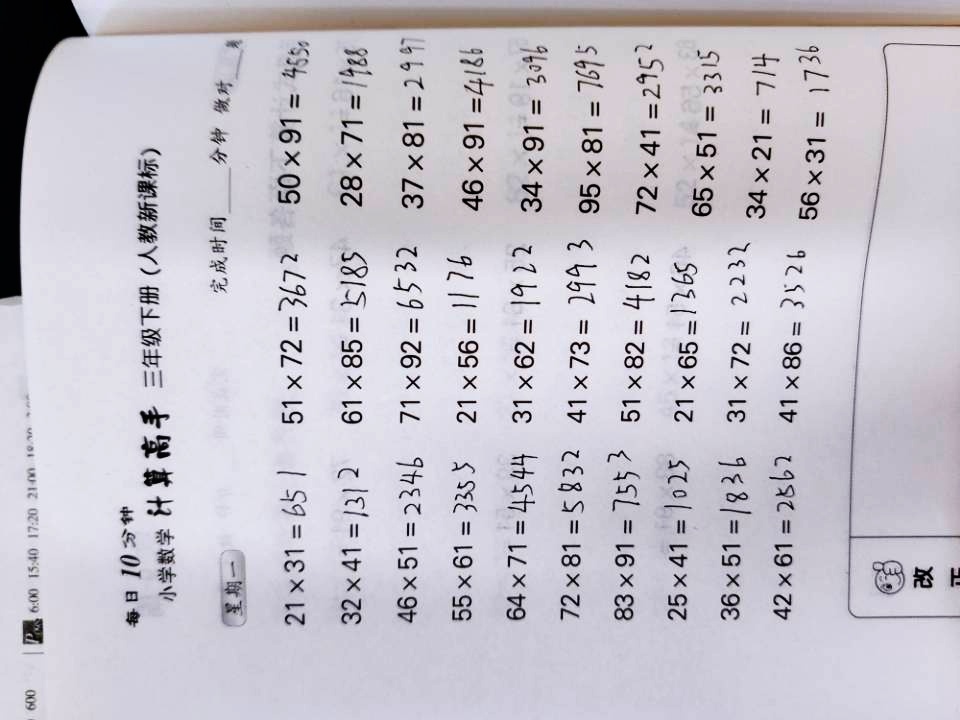 600
6:00 15:40 17:20 21:00
每日10分钟
小学数学 计算高手 三年级下册（人教新课标）
星期一 完成时间____分钟 做对____
21×31=651 51×72=3672 50×91=4550
32×41=1312 61×85=5185 28×71=1988
46×51=2346 71×92=6532 37×81=2997
55×61=3355 21×56=1176 46×91=4186
64×71=4544 31×62=1922 34×91=3096
72×81=5832 41×73=2993 95×81=7695
83×91=7553 51×82=4182 72×41=2952
25×41=1025 21×65=1365 65×51=3315
36×51=1836 31×72=2232 34×21=714
42×61=2562 41×86=3526 56×31=1736
改
正